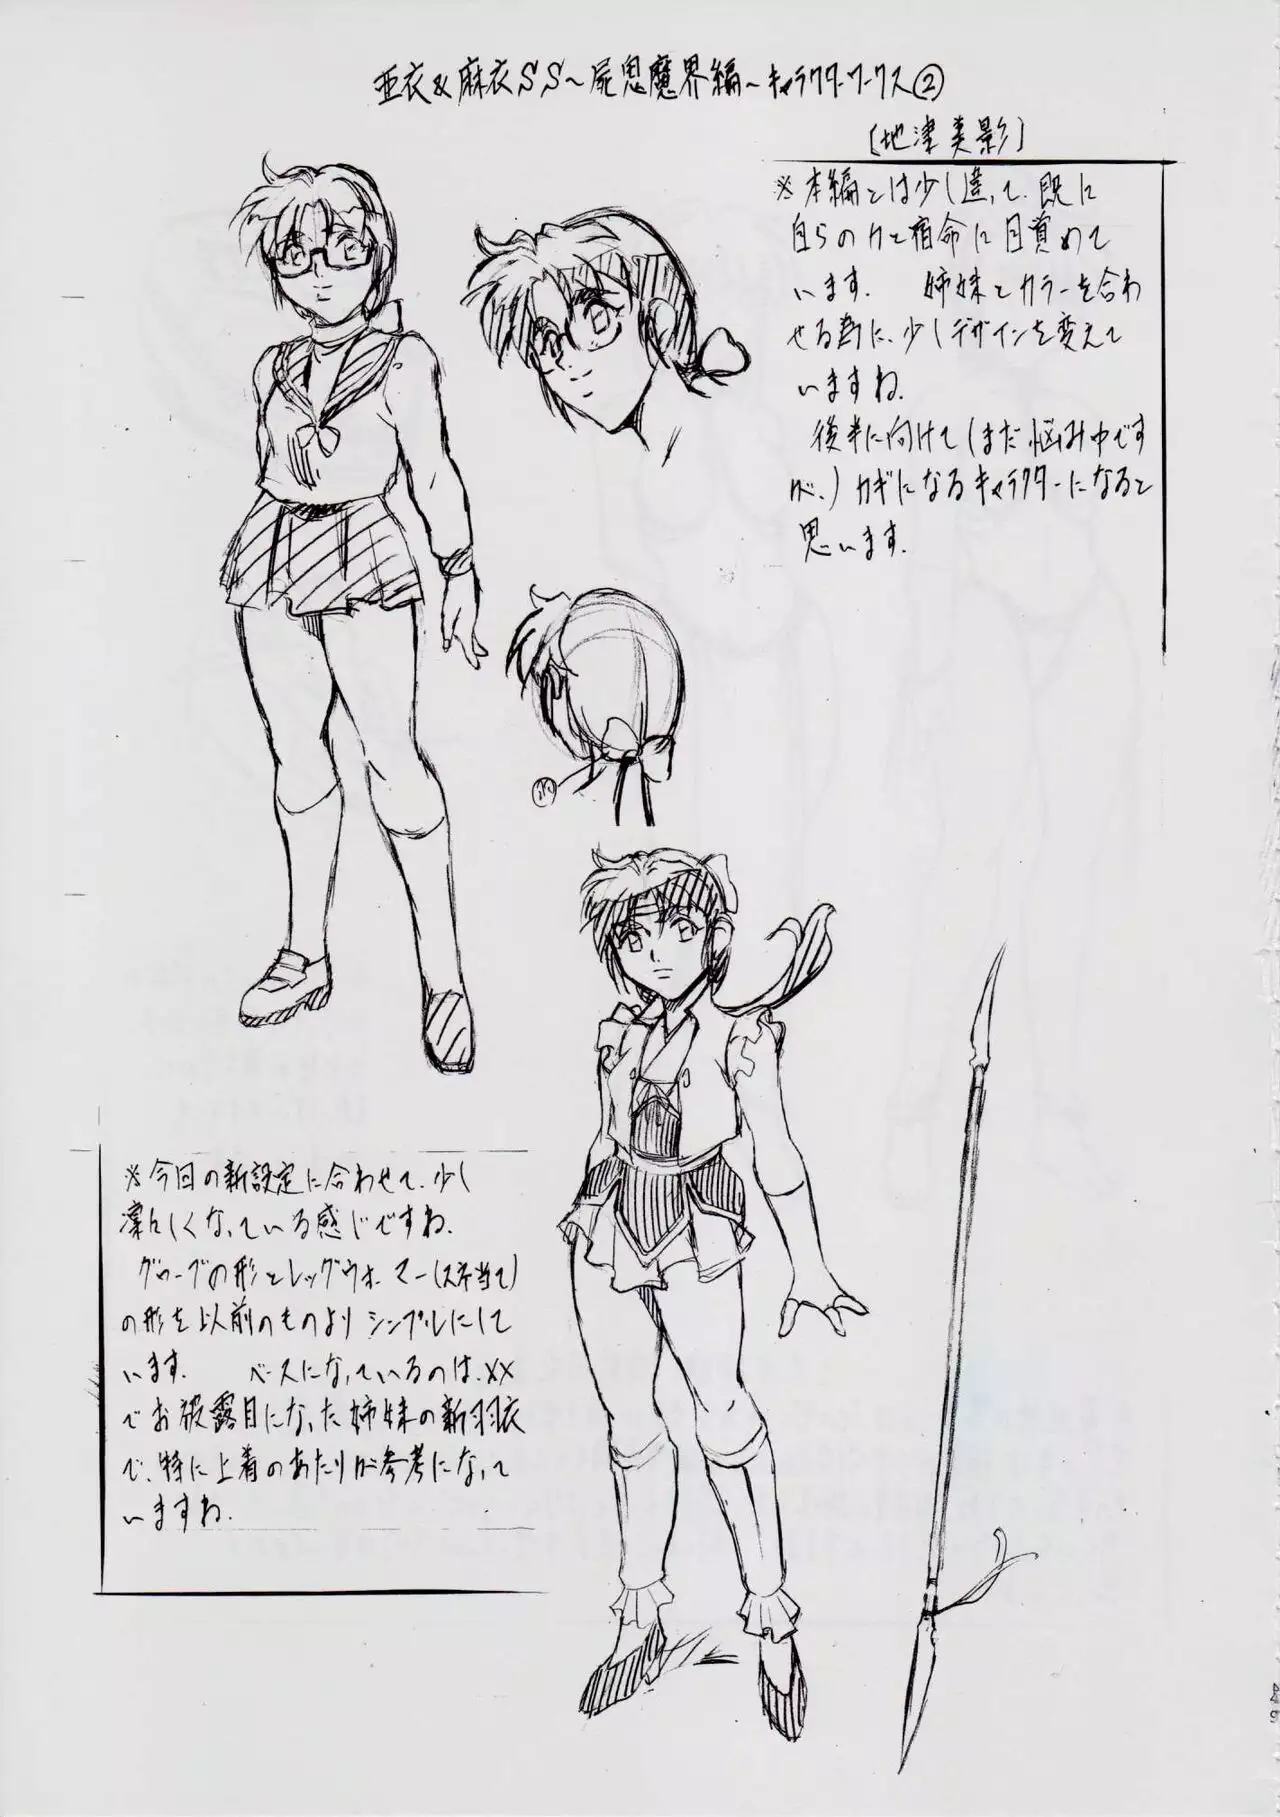 亜衣&麻衣SS～屍鬼魔界編～キャラクターワークス②
〔地津美影〕
※本編とは少し違って、既に
自らの力と宿命に目覚めて
います。 姉妹とカラーを合わ
せる為に、少しデザインを変えて
いますね。
後半に向けて(まだ悩み中です
が、)カギになるキャラクターになると
思います。
※今回の新設定に合わせて、少し
凛々しくなっている感じですね。
グローブの形とレッグウォーマー(スネ当て)
の形を以前のものよりシンプルにして
います。 ベースになっているのは、XX
でお披露目になった姉妹の新羽衣
で、特に上着のあたりが参考になって
いますね。